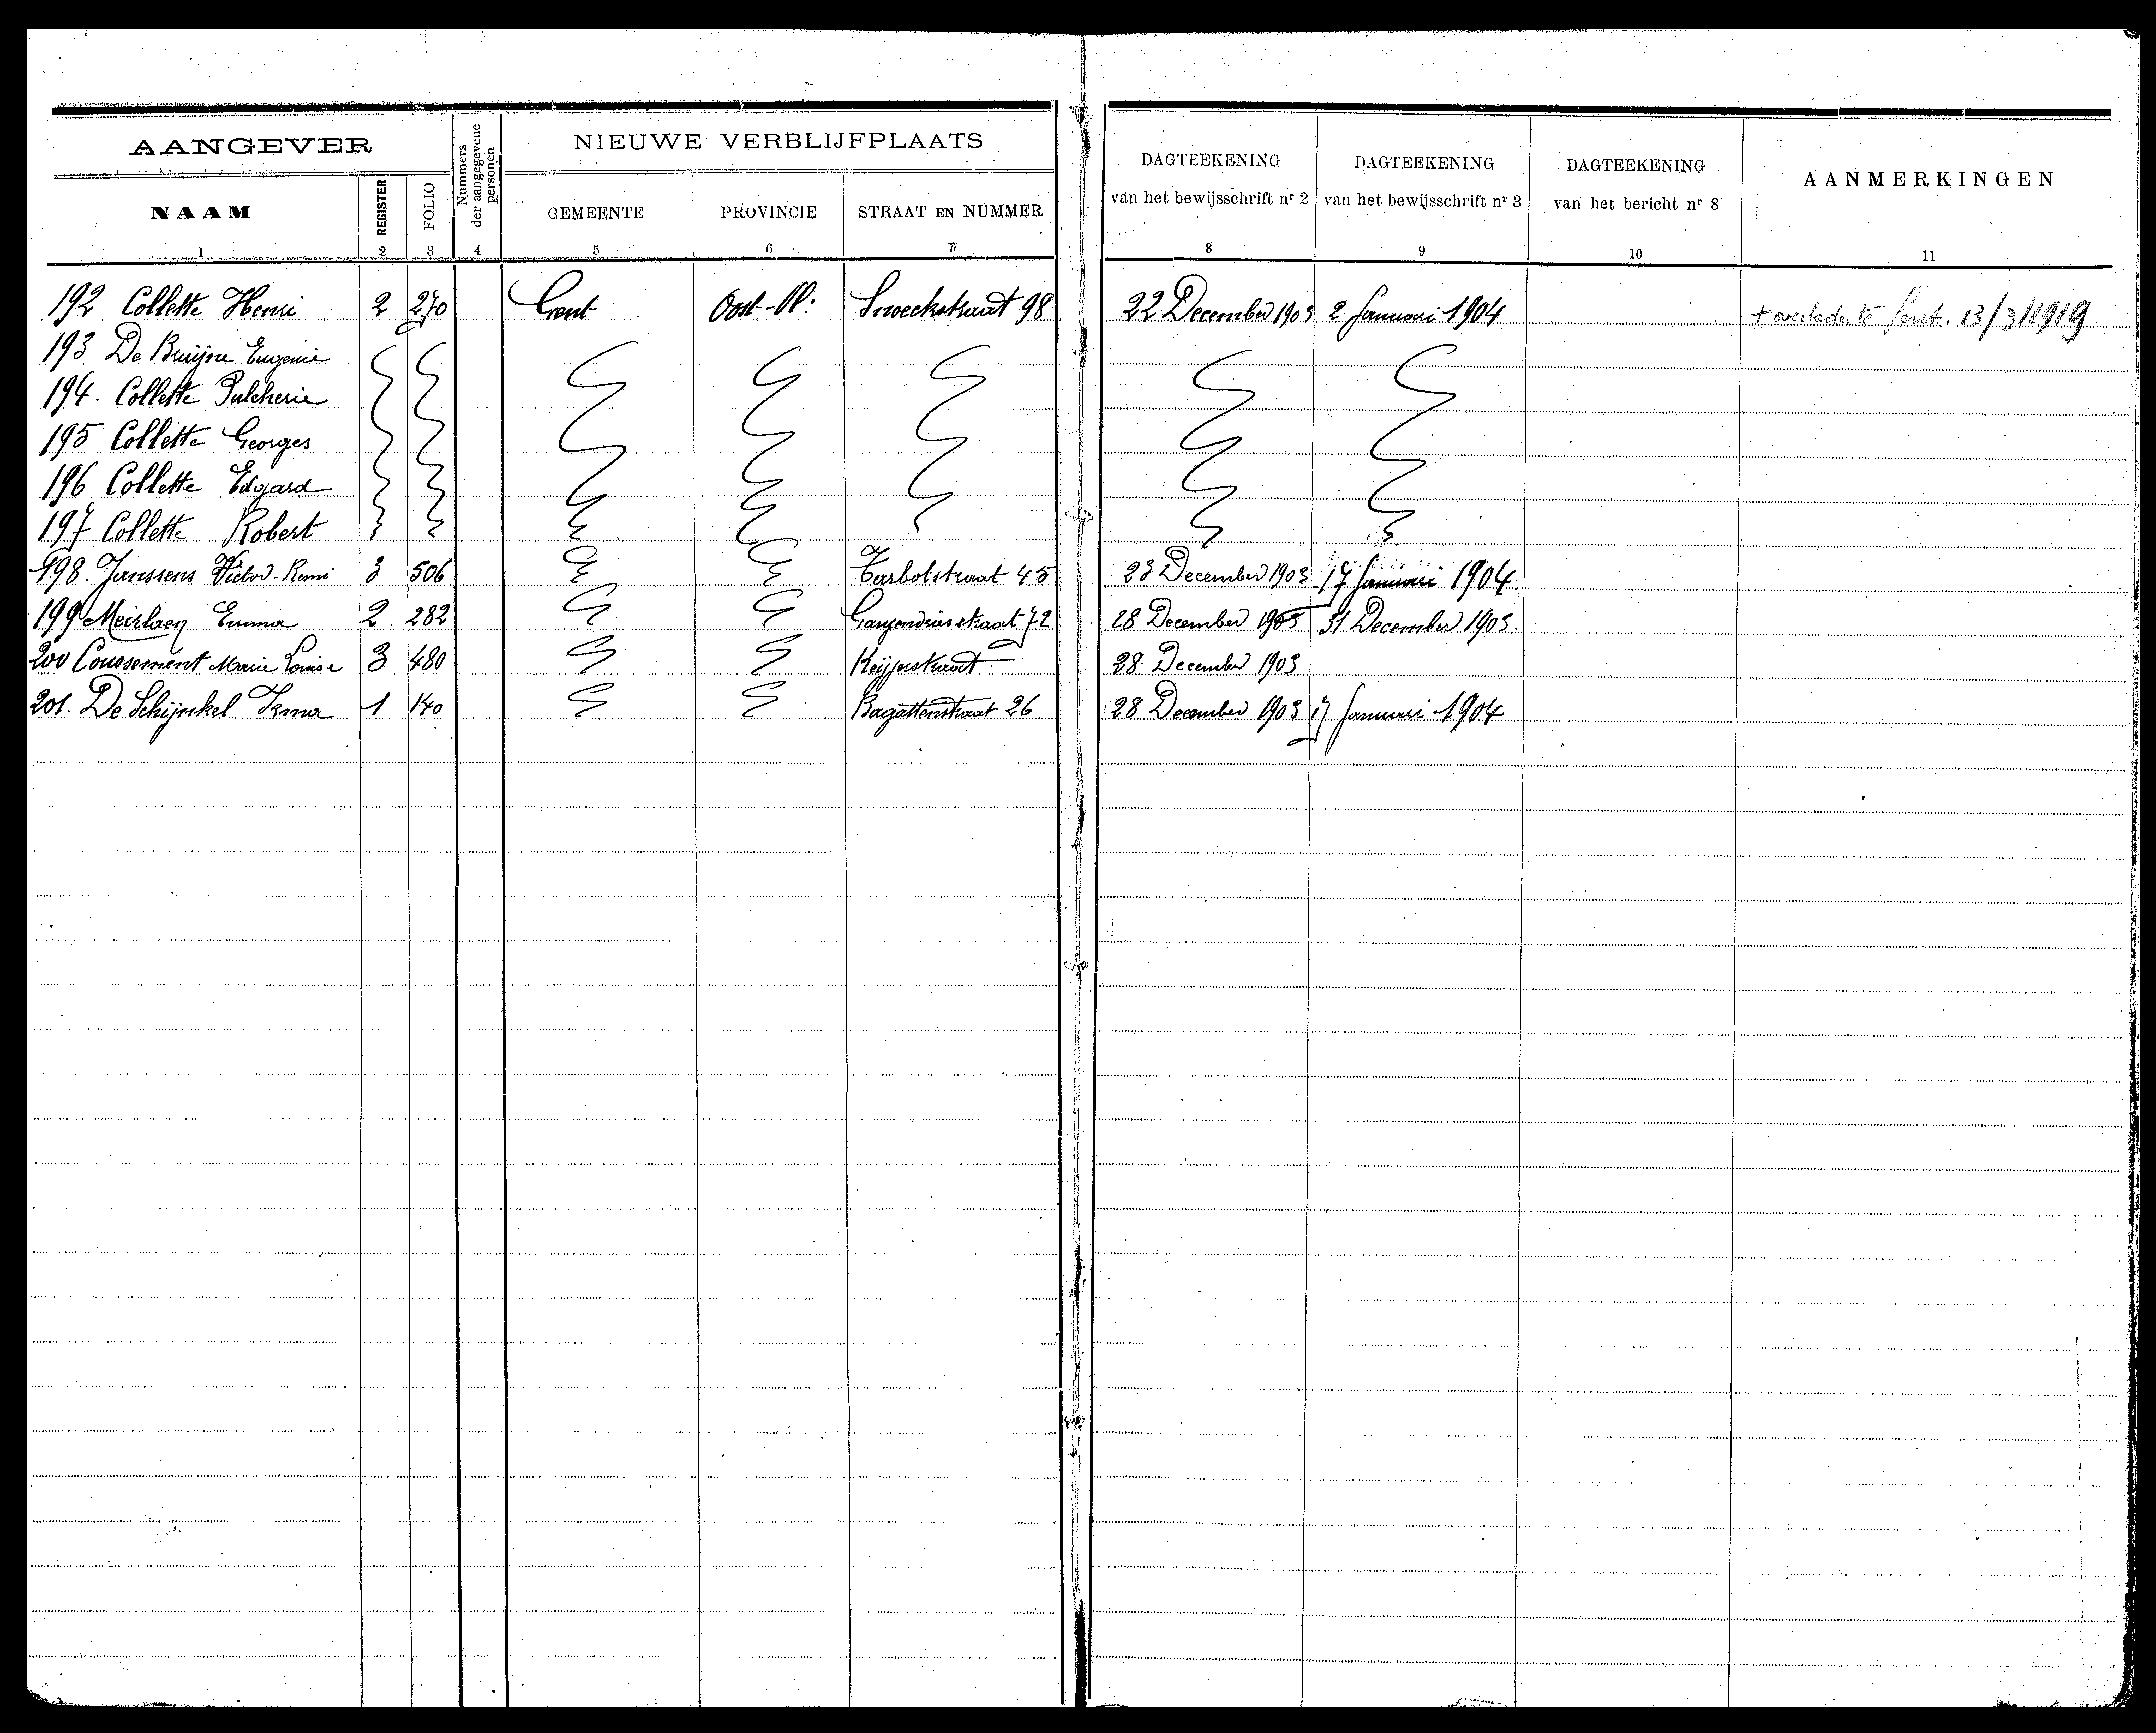 AANGEVER
Nummers der aangegevene personen
NIEUWE VERBLIJFPLAATS
NAAM REGISTER FOLIO GEMEENTE PROVINCIE STRAAT EN NUMMER
DAGTEEKENING van het bewijsschrift nr 2
DAGTEEKENING van het bewijsschrift nr 3
DAGTEEKENING van het bericht nr 8
AANMERKINGEN
1 2 3 4 5 6 7 8 9 10 11
192 Collette Henri 2 270 Gent Oost-Vl: Snoeckstraat 98 22 December 1903 2 Januari 1904 + overleden te Gent. 13/3/1919
193 De Bruijne Eugenie
194. Collette Pulcherie
195 Collette Georges
196 Collette Edgard
197 Collette Robert
198. Janssens Victor-Remi 3 506 Tarbotstraat 45 23 December 1903 17 Januari 1904.
199 Meirlaen Emma 2. 282 72 28 December 1903 31 December 1903.
200 Coussement Marie Louise 3 480 Keijserstraat 28 December 1903
201. De Schijnkel Irma 1 140 Bagattenstraat 26 28 December 1903 17 Januari 1904